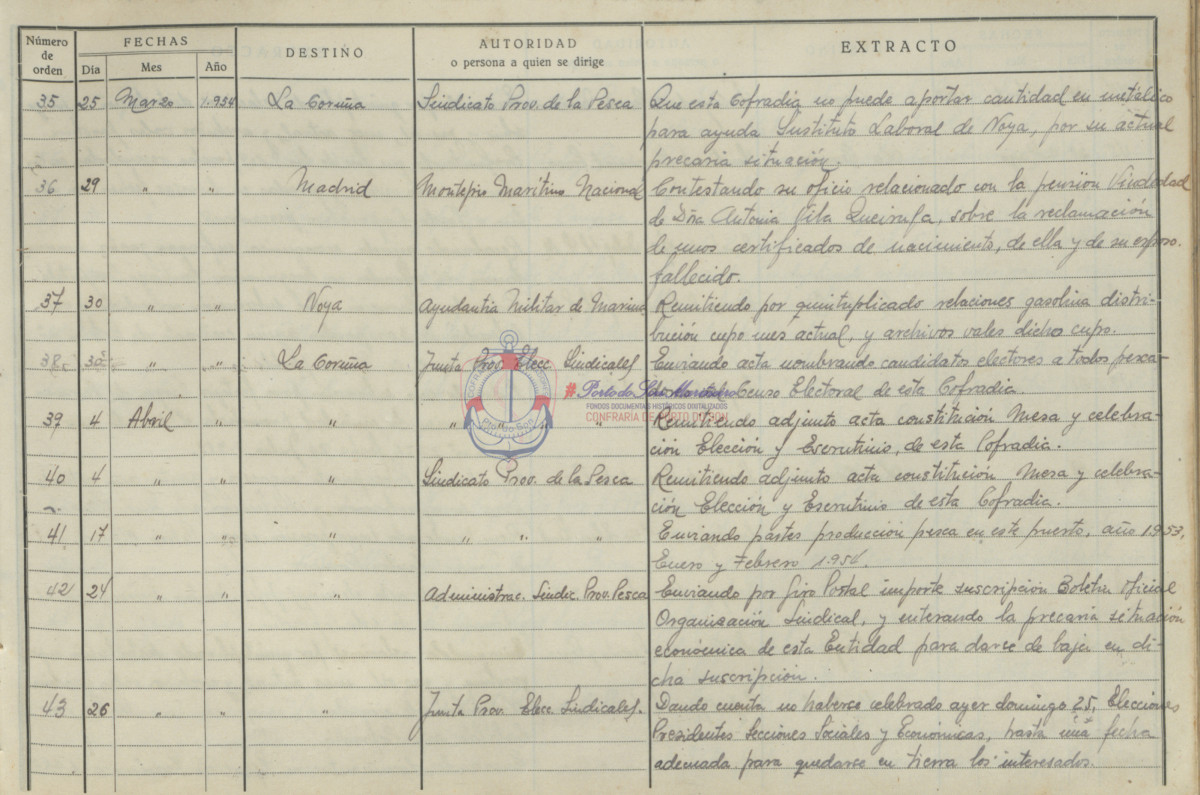 Número de orden FECHAS DESTINO AUTORIDAD EXTRACTO
Día Mes Año o persona a quien se dirige
35 25 Marzo 1.954 La Coruña Sindicato Prov. de la Pesca Que esta Cofradia no puede aportar cantidad en metálico
para ayuda Instituto Laboral de Noya, por su actual
precaria situación.
36 29 " " Madrid Montepio Maritimo Nacional Contestando su oficio relacionado con la pensión Viudedad
de Dña Antonia Vila Queiruga, sobre la reclamación
de unos certificados de nacimiento, de ella y de su esposo
fallecido.
37 30 " " Noya Ayudantia Militar de Marina Remitiendo por quintuplicado relaciones gasolina distri-
bución cupo mes actual, y archivos vales dicho cupo.
38 30 " " La Coruña Junta Prov. Elecc. Sindicales Enviando acta nombrando candidatos electores a todos pesca-
Censo Electoral de esta Cofradia.
#Porto do Son Mariñeiro
FONDOS DOCUMENTAIS HISTÓRICOS DIXITALIZADOS
CONFRARÍA DE PORTO DO SON
Porto do Son
39 4 Abril " " " " " Remitiendo adjunto acta constitución Mesa y celebra-
ción Elección y Escrutinio, de esta Cofradia.
40 4 " " " Sindicato Prov. de la Pesca Remitiendo adjunto acta constitución Mesa y celebra-
ción Elección y Escrutinio de esta Cofradia.
41 17 " " " " " " Enviando partes producción pesca en este puerto, año 1.953,
Enero y Febrero 1.954.
42 24 " " " Administrac. Sindic. Prov. Pesca Enviando por Giro Postal importe suscripción Boletin Oficial
Organización Sindical, y enterando la precaria situación
económica de esta Entidad para darse de baja en di-
cha suscripción.
43 26 " Junta Prov. Elecc. Sindicales. Dando cuenta no haberse celebrado ayer domingo 25, Elecciones
Presidentes Secciones Sociales y Económicas, hasta una fecha
adecuada para quedarse en tierra los interesados.